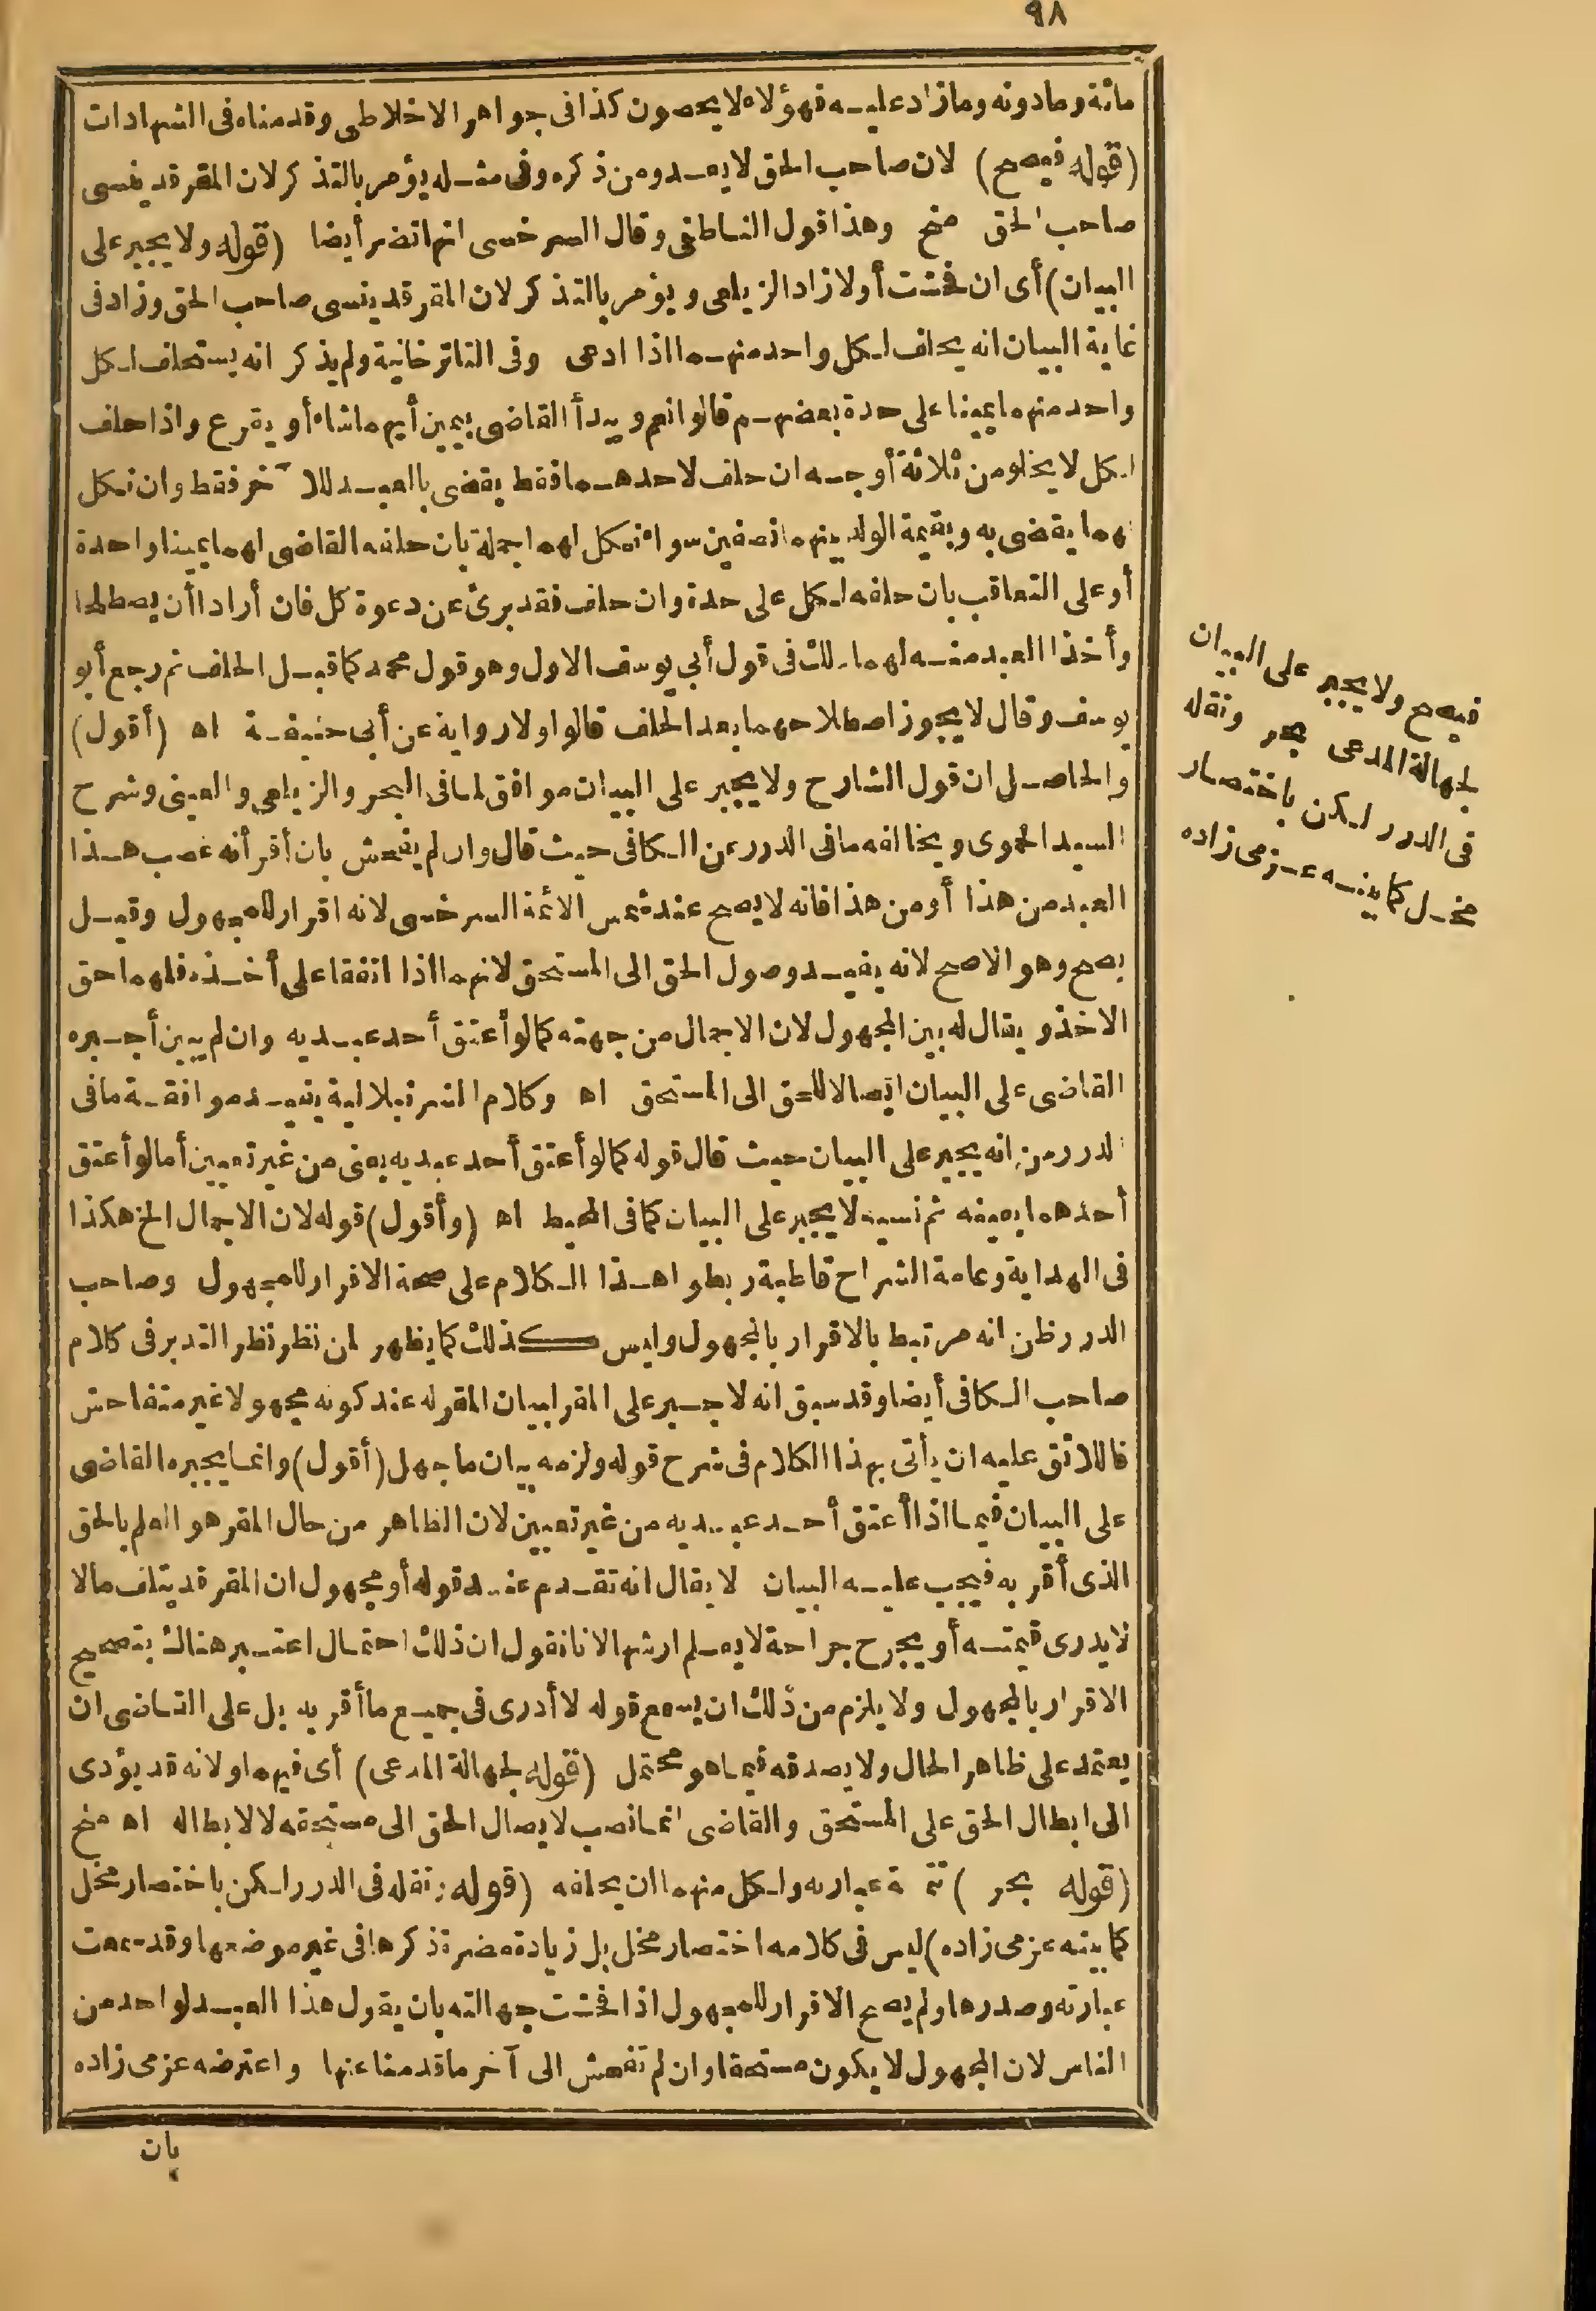 ٩٨
مائة وما دونه وما زاد عليه فهؤلاء لا يحصون كذا فى جواهر الاخلاطى وقدمناه فى الشهادات
(قوله فيصح) لان صاحب الحق لا يعدو من ذكره وفى مثله يؤمر بالتذكر لان المقر قد ينسى
صاحب الحق منح وهذا قول الناطفى وقال السرخسى انها تضر أيضا (قوله ولا يجبر على
البيان) أى ان فحشت أولا زاد الزيلعى ويؤمر بالتذكر لان المقر قد ينسى صاحب الحق وزاد فى
غاية البيان انه يحلف لكل واحد منهما اذا ادعى وفى التاترخانية ولم يذكر انه يستحلف لكل
واحد منهما يمينا على حدة بعضهم قالوا نعم ويبدأ القاضى بيمين أيهما شاء أو يقرع واذا حلف
لكل لا يخلو من ثلاثة أوجه ان حلف لاحدهما فقط يقضى بالعبد للآخر فقط وان نكل
لهما يقضى به وبقيمة الولد بينهما نصفين سواء نكل لهما جملة بان حلفه القاضى لهما يمينا واحدة
أو على التعاقب بان حلفه لكل على حدة وان حلف فقد برئ عن دعوة كل فان أرادا أن يصطلحا
وأخذا العبد منه لهما ذلك فى قول أبى يوسف الاول وهو قول محمد كما قبل الحلف ثم رجع أبو
يوسف وقال لا يجوز اصطلاحهما بعد الحلف قالوا ولا رواية عن أبى حنيفة اه (أقول)
والحاصل ان قول الشارح ولا يجبر على البيان موافق لما فى البحر والزيلعى والعينى وشرح
السيد الحموى ويخالفه ما فى الدرر عن الكافى حيث قال وان لم يفحش بان أقر أنه غصب هذا
العبد من هذا أو من هذا فانه لا يصح عند شمس الائمة السرخسى لانه اقرار للمجهول وقيل
يصح وهو الاصح لانه يفيد وصول الحق الى المستحق لانهما اذا اتفقا على أخذه فلهما حق
الاخذ ويقال له بين المجهول لان الاجمال من جهته كما لو أعتق أحد عبديه وان لم يبين أجبره
القاضى على البيان ايصالا للحق الى المستحق اه وكلام الشرنبلالية يفيد موافقة ما فى
الدرر من انه يجبر على البيان حيث قال قوله كما لو أعتق أحد عبديه يعنى من غير تعيين أما لو أعتق
أحدهما بعينه ثم نسيه لا يجبر على البيان كما فى المحيط اه (وأقول) قوله لان الاجمال الخ هكذا
فى الهداية وعامة الشراح قاطبة ربطوا هذا الكلام على صحة الاقرار للمجهول وصاحب
الدرر ظن انه مرتبط بالاقرار بالمجهول وليس كذلك كما يظهر لمن نظر نظر التدبر فى كلام
صاحب الكافى أيضا وقد سبق انه لا جبر على المقر لبيان المقر له عند كونه مجهولا غير متفاحش
فاللائق عليه ان يأتى بهذا الكلام فى شرح قوله ولزمه بيان ما جهل (أقول) وانما يجبره القاضى
على البيان فيما اذا أعتق أحد عبديه من غير تعيين لان الظاهر من حال المقر هو العلم بالحق
الذى أقر به فيجب عليه البيان لا يقال انه تقدم عند قوله أو مجهول ان المقر قد يتلف مالا
لا يدرى قيمته أو يجرح جراحة لا يعلم ارشها لانا نقول ان ذلك احتمال اعتبر هناك بتصحيح
الاقرار بالمجهول ولا يلزم من ذلك ان يسمع قوله لا أدرى فى جميع ما أقر به بل على القاضى ان
يعتمد على ظاهر الحال ولا يصدقه فيما هو محتمل (قوله لجهالة المدعى) أى فيهما ولانه قد يؤدى
الى ابطال الحق على المستحق والقاضى انما نصب لايصال الحق الى مستحقه لا لابطاله اه منح
(قوله بحر) تتمة عبارته ولكل منهما ان يحلفه (قوله ونقله فى الدرر لكن باختصار مخل
كما بينه عزمى زاده) ليس فى كلامه اختصار مخل بل زيادة مضرة ذكرها فى غير موضعها وقد سمعت
عبارته وصدرها ولم يصح الاقرار للمجهول اذا فحشت جهالته بان يقول هذا العبد لواحد من
الناس لان المجهول لا يكون مستحقا وان لم تفحش الى آخر ما قدمنا عنها واعترضه عزمى زاده
بان
فيصح ولا يجبر على البيان
لجهالة المدعى بحر ونقله
فى الدرر لكن باختصار
مخل كما بينه عزمى زاده